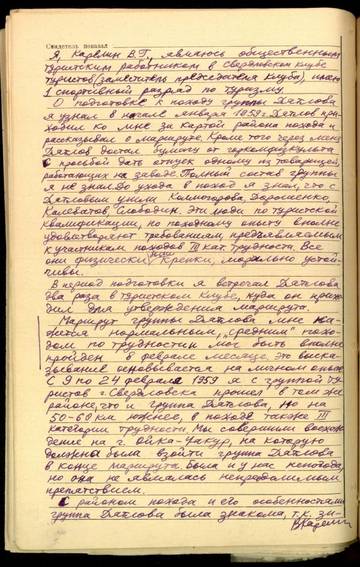 Свидетель показал
Я, Карелин В.Г., являюсь общественным
туристским работником в свердловском клубе
туристов (заместитель председателя клуба), имею
1 спортивный разряд по туризму.
О подготовке к походу группы Дятлова
я узнал в начале января 1959 г. Дятлов при-
ходил ко мне за картой района похода и
рассказывал о маршруте. Кроме того через меня
Дятлов достал бумагу от горкомфизкульта
с просьбой дать отпуск одному из товарищей,
работающих на заводе. Полный состав группы
я не знал. До ухода в поход я знал, что с
Дятловым идут Колмогорова, Дорошенко,
Колеватов, Слободин. Эти люди по туристской
квалификации, по походному опыту вполне
удовлетворяют требованиям, предъявляемым
к участникам походов III кат. трудности. Все
они физически были крепки, морально устой-
чивы.
В период подготовки я встречал Дятлова
два раза в туристском клубе, куда он прихо-
дил для утверждения маршрута.
Маршрут группы Дятлова мне ка-
жется нормальным, "средним" похо-
дом по трудности и мог быть вполне
пройден в феврале месяце. Это выска-
зывание основывается на личном опыте.
С 9 по 24 февраля 1959 я с группой ту-
ристов г. Свердловска прошел в том же
районе, что и группа Дятлова, но на
50-60 км южнее, в походе также III
категории трудности. Мы совершили восхож-
дение на г. Ойка-Чакур, на которую
должна была взойти группа Дятлова
в конце маршрута. Была и у нас непогода,
но она не являлась непреодолимым
препятствием.
С районом похода и его особенностями
группа Дятлова была знакома, т.к. зи-
ВКарелин